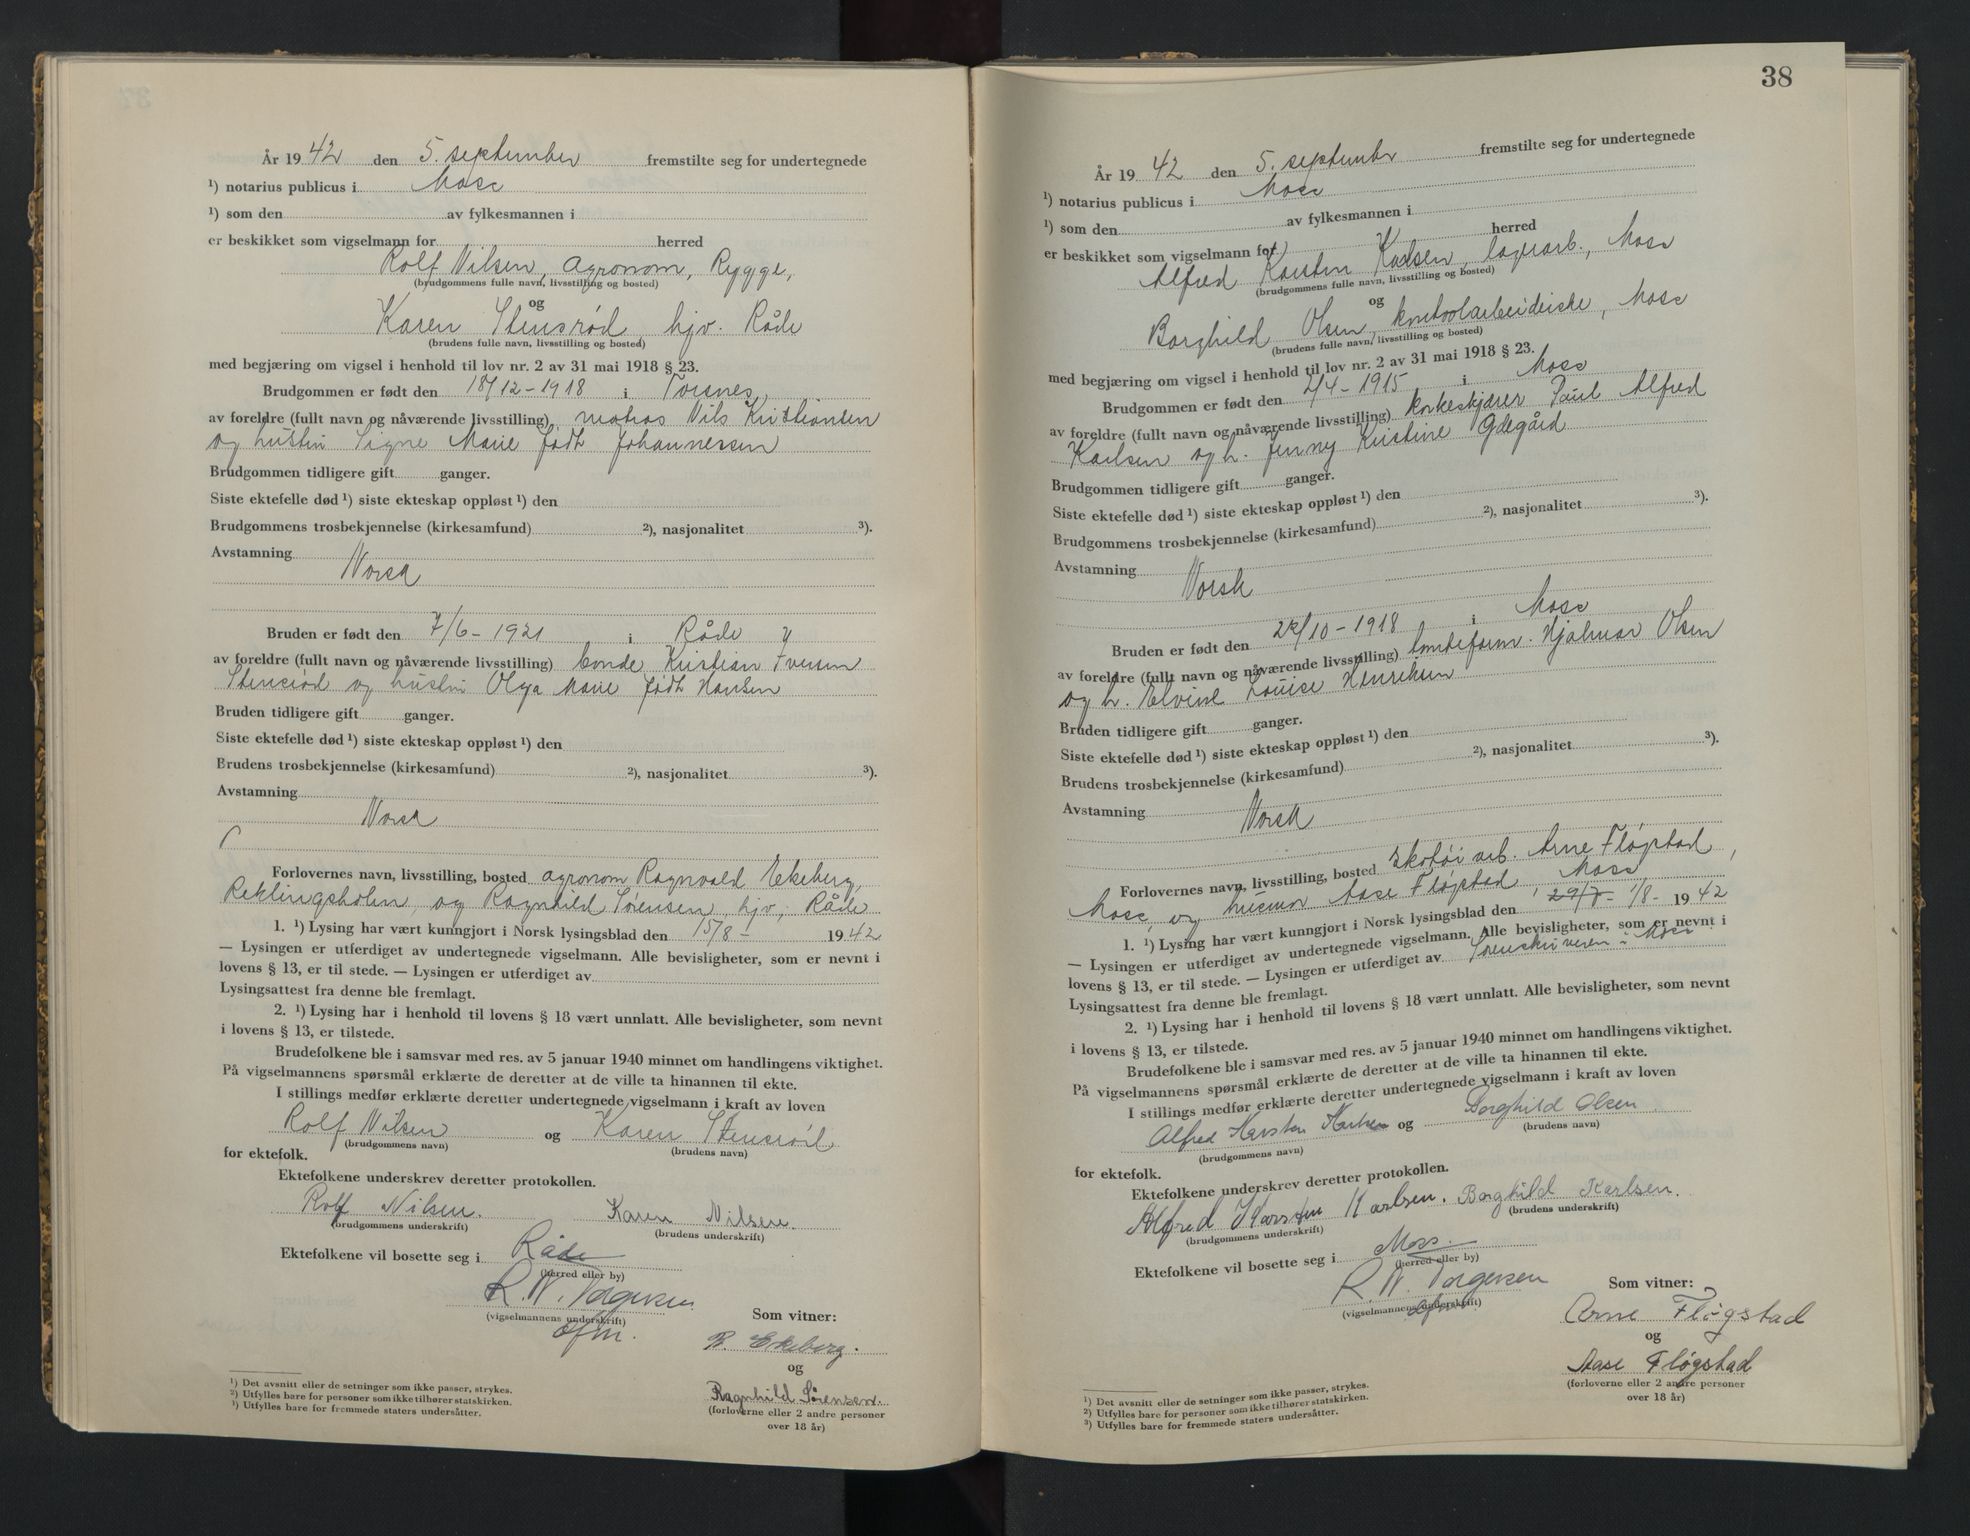 År 19 42 den 5. september fremstilte seg for undertegnede
¹) notarius publicus i Moss
¹) som den av fylkesmannen i
er beskikket som vigselmann for herred
Rolf Nilsen, agronom, Rygge,
(brudgommens fulle navn, livsstilling og bosted)
og
Karen Stensrød, hjv. Råde
(brudens fulle navn, livsstilling og bosted)
med begjæring om vigsel i henhold til lov nr. 2 av 31 mai 1918 § 23.
Brudgommen er født den 18/12-1918 i Torsnes,
av foreldre (fullt navn og nåværende livsstilling) matros Nils Kristiansen
og hustru Signe Marie født Johannessen
Brudgommen tidligere gift ganger.
Siste ektefelle død ¹) siste ekteskap oppløst ¹) den
Brudgommens trosbekjennelse (kirkesamfund) ²), nasjonalitet ³).
Avstamning
Norsk
Bruden er født den 7/6-1921 i Råde
av foreldre (fullt navn og nåværende livsstilling) bonde Kristian Iversen
Stensrød og hustru Olga Marie født Hansen
Bruden tidligere gift ganger.
Siste ektefelle død ¹) siste ekteskap oppløst ¹) den
Brudens trosbekjennelse (kirkesamfund) ²), nasjonalitet ³).
Avstamning
Norsk
Forlovernes navn, livsstilling, bosted agronom Ragnvald Ekeberg,
Reklingsholm, og Ragnhild Sørensen, hjv., Råde
1. ¹) Lysing har vært kunngjort i Norsk lysingsblad den 15/8- 19 42
— Lysingen er utferdiget av undertegnede vigselmann. Alle bevisligheter, som er nevnt i
lovens § 13, er til stede. — Lysingen er utferdiget av
Lysingsattest fra denne ble fremlagt.
2. ¹) Lysing har i henhold til lovens § 18 vært unnlatt. Alle bevisligheter, som nevnt
i lovens § 13, er tilstede.
Brudefolkene ble i samsvar med res. av 5 januar 1940 minnet om handlingens viktighet.
På vigselmannens spørsmål erklærte de deretter at de ville ta hinannen til ekte.
I stillings medfør erklærte deretter undertegnede vigselmann i kraft av loven
Rolf Nilsen og Karen Stensrød
(brudgommens navn) (brudens navn)
for ektefolk.
Ektefolkene underskrev deretter protokollen.
Rolf Nilsen. Karen Nilsen.
(brudgommens underskrift) (brudens underskrift)
Ektefolkene vil bosette seg i Råde
(herred eller by)
R. N. Torgersen
(vigselmannens underskrift)
Som vitner:
R. Ekeberg.
og
Ragnhild Sørensen.
(forloverne eller 2 andre personer
over 18 år)
¹) Det avsnitt eller de setninger som ikke passer, strykes.
²) Utfylles bare for personer som ikke tilhører statskirken.
³) Utfylles bare for fremmede staters undersåtter.
38
År 19 42 den 5. septembr fremstilte seg for undertegnede
¹) notarius publicus i Moss
¹) som den av fylkesmannen i
er beskikket som vigselmann for herred
Alfred Karsten Karlsen, lagerarb., Moss
(brudgommens fulle navn, livsstilling og bosted)
og
Borghild Olsen, kontrolarbeiderske, Moss
(brudens fulle navn, livsstilling og bosted)
med begjæring om vigsel i henhold til lov nr. 2 av 31 mai 1918 § 23.
Brudgommen er født den 2/4-1915 i Moss
av foreldre (fullt navn og nåværende livsstilling) korkeskjærer Paul Alfred
Karlsen og h. Jenny Kristine Ødegård
Brudgommen tidligere gift ganger.
Siste ektefelle død ¹) siste ekteskap oppløst ¹) den
Brudgommens trosbekjennelse (kirkesamfund) ²), nasjonalitet ³).
Avstamning
Norsk
Bruden er født den 22/10-1918 i Moss
av foreldre (fullt navn og nåværende livsstilling) tomteform. Hjalmar Olsen
og h. Elvine Louise Henriksen
Bruden tidligere gift ganger.
Siste ektefelle død ¹) siste ekteskap oppløst ¹) den
Brudens trosbekjennelse (kirkesamfund) ²), nasjonalitet ³).
Avstamning
Norsk
Forlovernes navn, livsstilling, bosted skotøiarb. Arne Fløgstad,
Moss, og husmor Aase Fløgstad Moss
1. ¹) Lysing har vært kunngjort i Norsk lysingsblad den 29/7- 1/8- 19 42
— Lysingen er utferdiget av undertegnede vigselmann. Alle bevisligheter, som er nevnt i
lovens § 13, er til stede. — Lysingen er utferdiget av Sorenskriveren i Moss
Lysingsattest fra denne ble fremlagt.
2. ¹) Lysing har i henhold til lovens § 18 vært unnlatt. Alle bevisligheter, som nevnt
i lovens § 13, er tilstede.
Brudefolkene ble i samsvar med res. av 5 januar 1940 minnet om handlingens viktighet.
På vigselmannens spørsmål erklærte de deretter at de ville ta hinannen til ekte.
I stillings medfør erklærte deretter undertegnede vigselmann i kraft av loven
Alfred Karsten Karlsen og Borghild Olsen
(brudgommens navn) (brudens navn)
for ektefolk.
Ektefolkene underskrev deretter protokollen.
Alfred Karsten Karlsen. Borghild Karlsen.
(brudgommens underskrift) (brudens underskrift)
Ektefolkene vil bosette seg i Moss.
(herred eller by)
R. N. Torgersen
(vigselmannens underskrift)
Som vitner:
Arne Fløgstad
og
Aase Fløgstad
(forloverne eller 2 andre personer
over 18 år)
¹) Det avsnitt eller de setninger som ikke passer, strykes.
²) Utfylles bare for personer som ikke tilhører statskirken.
³) Utfylles bare for fremmede staters undersåtter.